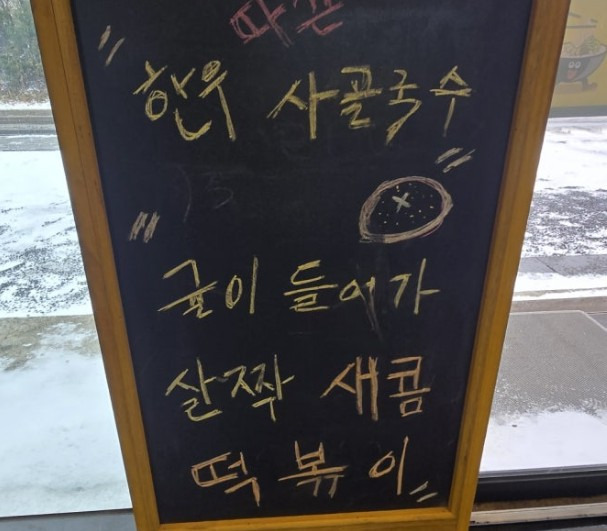 따끈
" 한우 사골국수 "
" 귤이 들어가
살짝 새콤
떡볶이 "